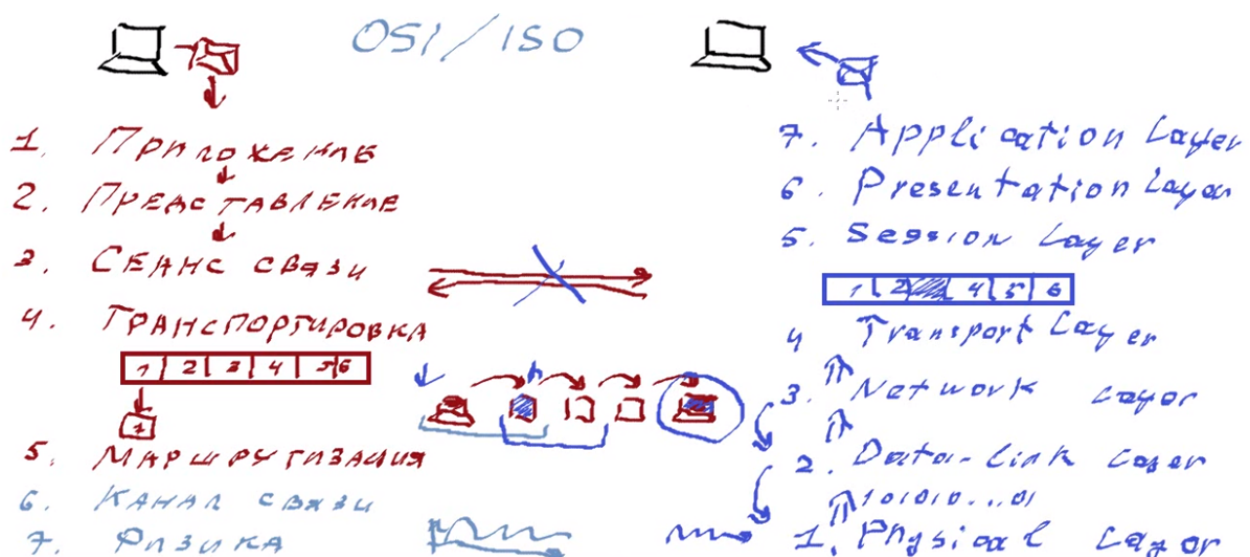 OSI/ISO
1. Приложение
2. Представление
3. Сеанс связи
4. Транспортировка
1 2 3 4 5 6
1
5. Маршрутизация
6. Канал связи
7. Физика
7. Application Layer
6. Presentation Layer
5. Session Layer
1 2 4 5 6
4 Transport Layer
3. Network Layer
2. Data-Link Layer
101010...01
1. Physical Layer